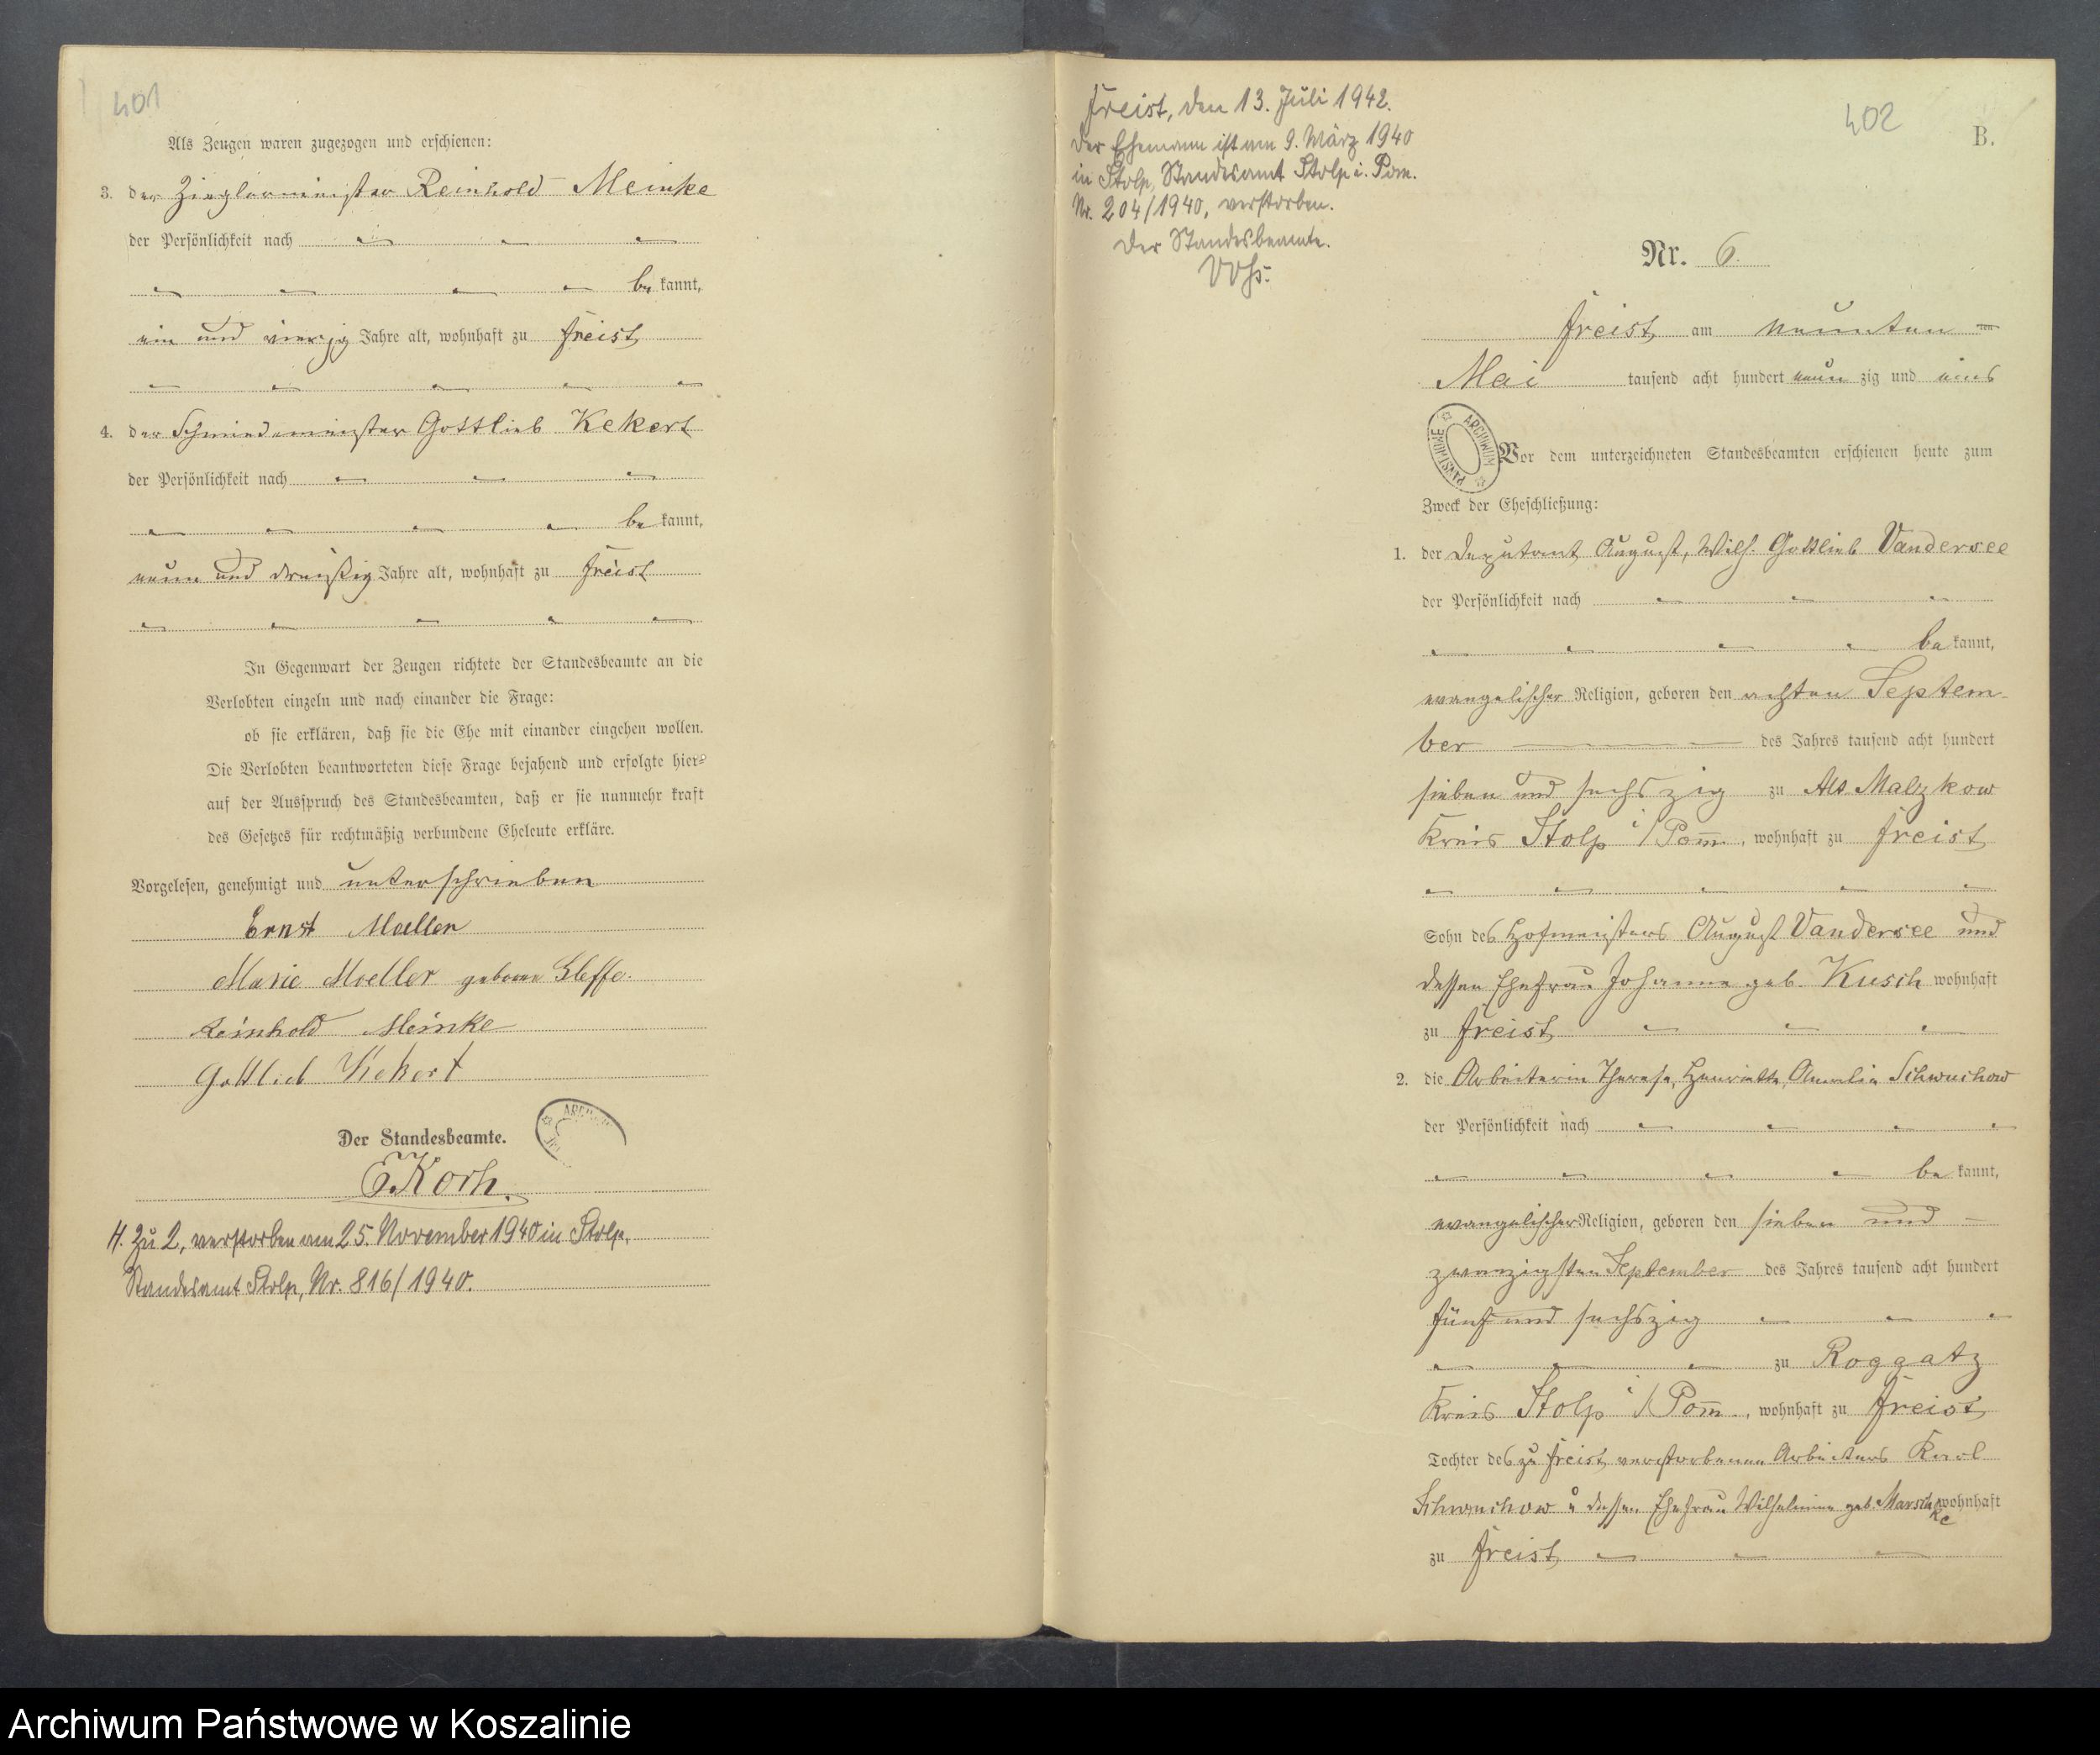 401
Als Zeugen waren zugezogen und erschienen:
3. der Zieglermeister Reinhold Meinke
der Persönlichkeit nach
be kannt,
ein und vierzig Jahre alt, wohnhaft zu Freist
4. der Schmiedemeister Gottlieb Kekert
der Persönlichkeit nach
be kannt,
neun und dreißig Jahre alt, wohnhaft zu Freist
In Gegenwart der Zeugen richtete der Standesbeamte an die
Verlobten einzeln und nach einander die Frage:
ob sie erklären, daß sie die Ehe mit einander eingehen wollen.
Die Verlobten beantworteten diese Frage bejahend und erfolgte hier-
auf der Ausspruch des Standesbeamten, daß er sie nunmehr kraft
des Gesetzes für rechtmäßig verbundene Eheleute erkläre.
Vorgelesen, genehmigt und unterschrieben
Ernst Moeller
Marie Moeller geborene
Reinhold Meinke
Gottlieb Kekert
Der Standesbeamte.
E Korth.
H. Zu 2, verstorben am 25. November 1940 in Stolp,
Standesamt Stolp, Nr. 816/1940.
Freist, den 13. Juli 1942.
Der Ehemann ist am 9. März 1940
in Stolp, Standesamt Stolp i. Pom.
Nr. 204/1940, verstorben.
Der Standesbeamte.
402
B.
Nr. 6.
Freist am neunten ten
Mai tausend acht hundert neun zig und eins
ARCHIWUM PAŃSTWOWE
Vor dem unterzeichneten Standesbeamten erschienen heute zum
Zweck der Eheschließung:
1. der Deputant August, Wilh. Gottlieb Vandersee
der Persönlichkeit nach
be kannt,
evangelischer Religion, geboren den achten Septem-
ber des Jahres tausend acht hundert
sieben und sechszig zu Alt Malzkow
Kreis Stolp i/Pomm., wohnhaft zu Freist
Sohn des Hofmeisters August Vandersee und
dessen Ehefrau Johanne geb. Kusch wohnhaft
zu Freist
2. die Arbeiterin Therese, Henriette, Amalie Schwuchow
der Persönlichkeit nach
be kannt,
evangelischer Religion, geboren den sieben und
zwanzigsten September des Jahres tausend acht hundert
fünf und sechszig
zu Roggatz
Kreis Stolp i/Pomm., wohnhaft zu Freist
Tochter des zu Freist verstorbenen Arbeiters Karl
Schwuchow u dessen Ehefrau Wilhelmine geb. Maruschke wohnhaft
zu Freist
Archiwum Państwowe w Koszalinie